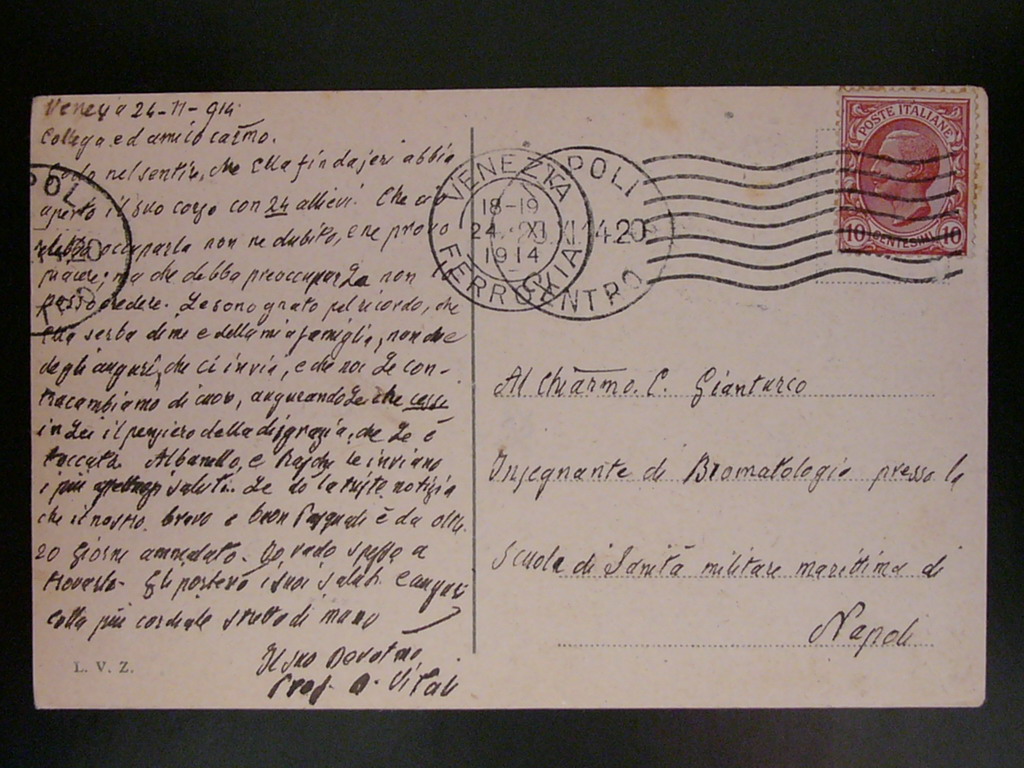 Venezia 24-11-914
Collega ed amico carmo.
Godo nel sentire, che Ella fin da jeri abbia
aperto il suo corso con 24 allievi. Che ciò
debba occuparla non ne dubito, e ne provo
piacere; ma che debba preoccuparLa non
posso credere. Le sono grato pel ricordo, che
Ella serba di me e della mia famiglia, nonchè
degli auguri, che ci invia, e che noi Le con-
traccambiamo di cuore, augurandoLe che cessi
in Lei il pensiero della disgrazia, che Le è
toccata. Albanello, e le inviano
i più saluti. Le do la triste notizia
che il nostro bravo e buon Pasquali è da oltre
20 giorni ammalato. Io vado spesso a
trovarlo. Gli porterò i suoi saluti e auguri
Colla più cordiale stretta di mano
Il suo Devotmo
Prof. D. Vitali
L. V. Z.
POLI
4.20
VENEZIA
18-19
24. XI
1914
FERROVIA
POLI
23.XI.14.20
CENTRO
POSTE ITALIANE
10 CENTESIMI 10
Al Chiarmo. C. Gianturco
Insegnante di Bromatologia presso la
Scuola di Sanità militare marittima di
Napoli